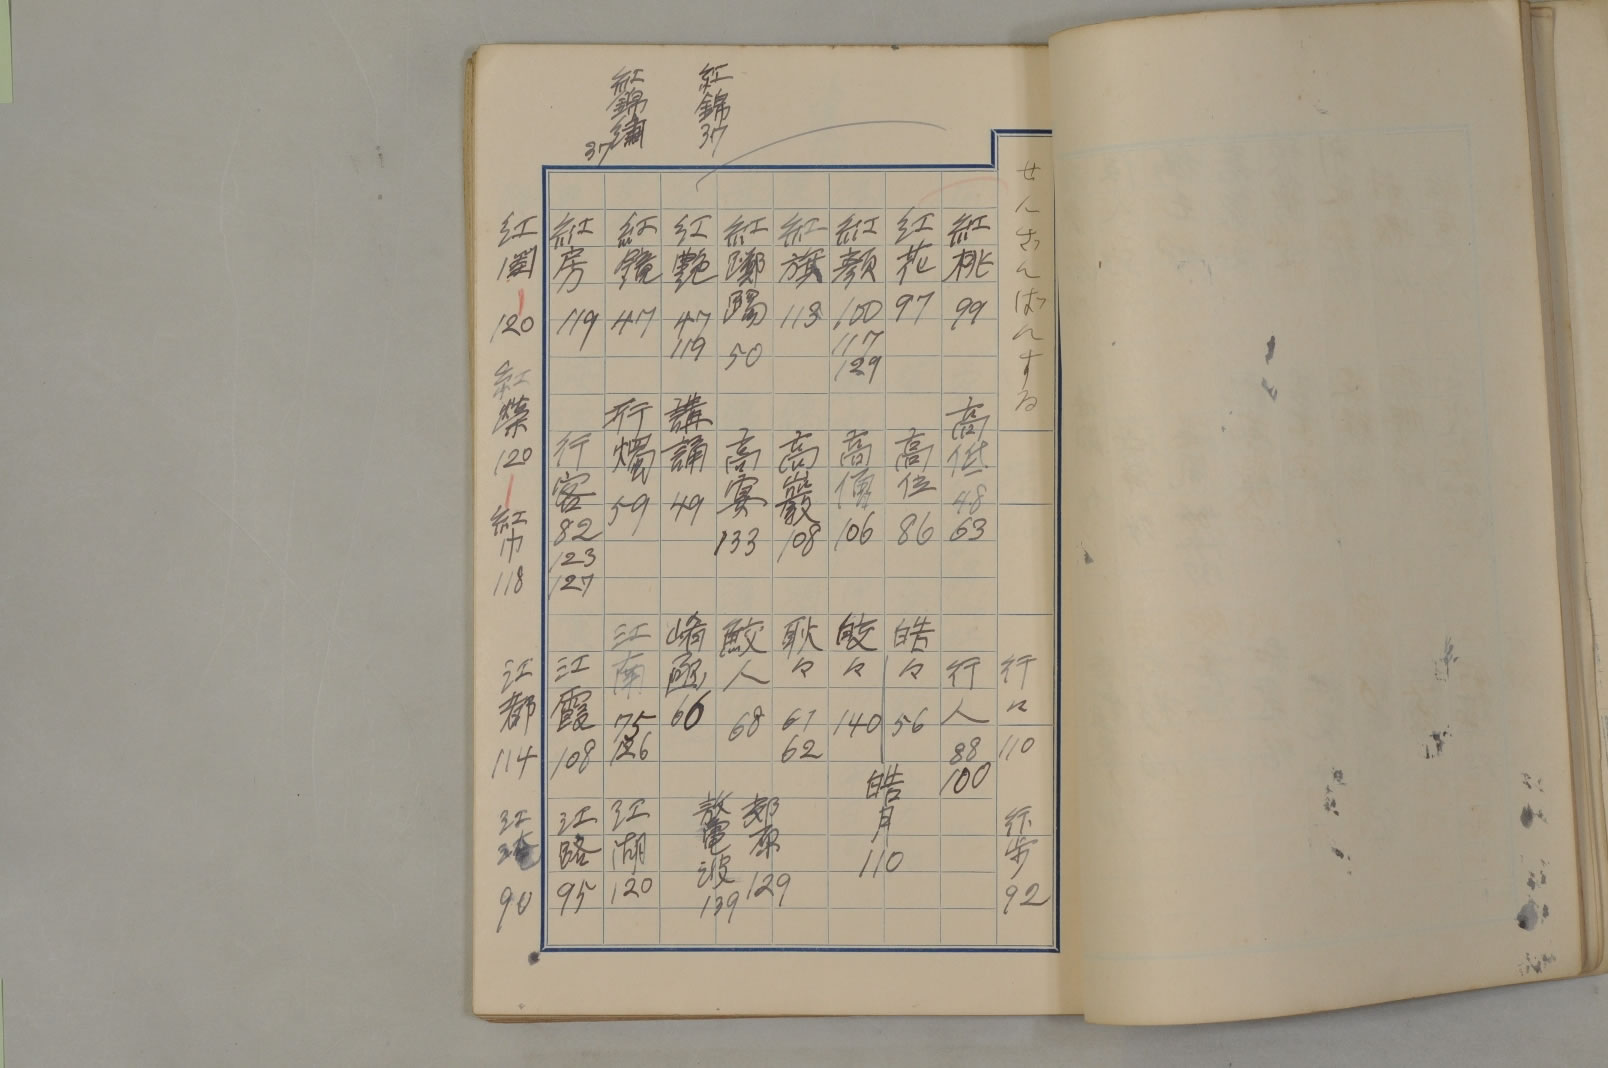 紅錦 37
紅錦繡 37
せんさんばんする
紅桃 99
紅花 97
紅顏 100 117 129
紅旗 113
紅躑躅 50
紅艶 47 119
紅鏡 47
紅房 119
120
紅 120
紅巾 118
高低 48 63
高位 86
高僧 106
高巖 108
高 133
講誦 49
行燭 59
行客 82 123 127
行々 110
行人 88 100
皓々 56
皎々 140
耿々 61 62
鮫人 68
崤函 66
江南 75 126
江霞 108
江都 114
行步 92
皓月 110
129
波 139
江湖 120
江路 95
90